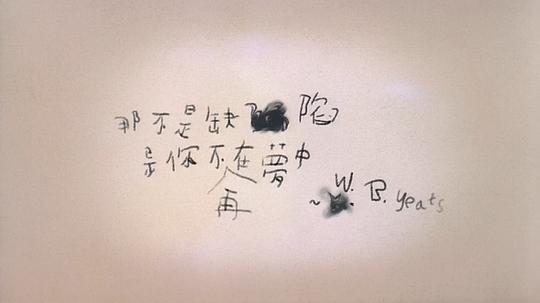 那不是缺陷
是你不在夢中
再
~ W. B. yeats